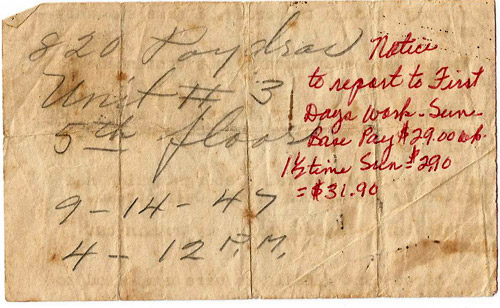 820 Poydras
Unit # 3
5th floor
9-14-47
4-12 P.M.
Notice
to report to First
Days work - Sun-
Base Pay $29.00 wk.
1½ time Sun = $2.90
= $31.90